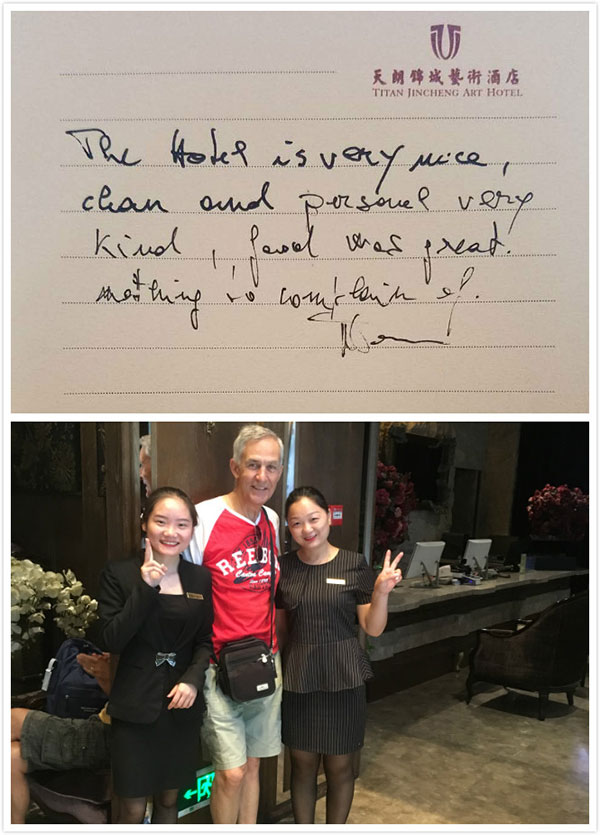 天朗錦城藝術酒店
TITAN JINCHENG ART HOTEL
The Hotel is very nice,
clean and personel very
kind, food was great.
nothing to complain of.
REEBOK